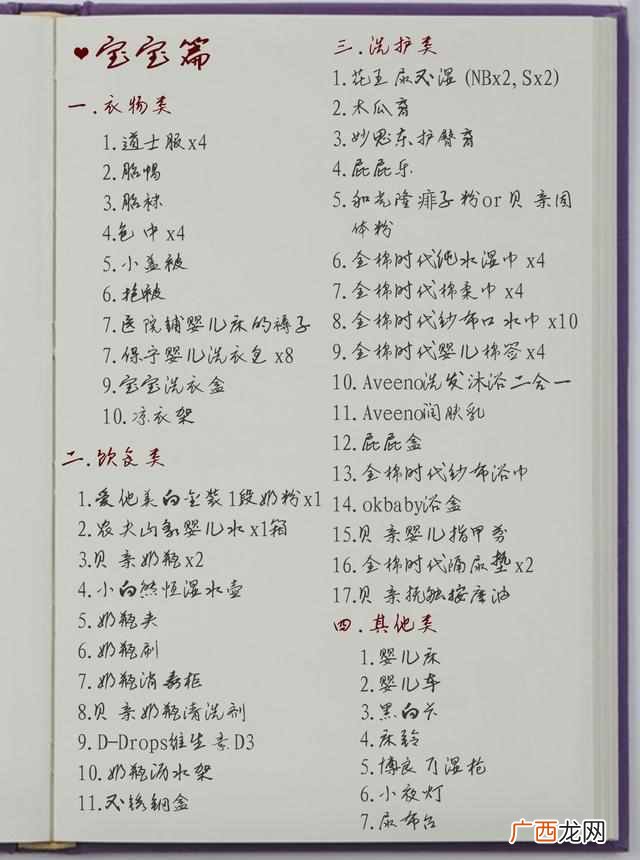 ♥宝宝篇
一.衣物类
1.道士服x4
2.胎帽
3.胎袜
4.包巾x4
5.小盖被
6.抱被
7.医院铺婴儿床的褥子
7.保宁婴儿洗衣皂x8
9.宝宝洗衣盆
10.凉衣架
二.饮食类
1.爱他美白金装1段奶粉x1
2.农夫山泉婴儿水x1箱
3.贝亲奶瓶x2
4.小白熊恒温水壶
5.奶瓶夹
6.奶瓶刷
7.奶瓶消毒柜
8.贝亲奶瓶清洗剂
9.D-Drops维生素D3
10.奶瓶沥水架
11.不锈钢盆
三.洗护类
1.花王尿不湿(NBx2,Sx2)
2.木瓜膏
3.妙思乐护臀膏
4.屁屁乐
5.和光隆痱子粉or贝亲固
体粉
6.全棉时代纯水湿巾x4
7.全棉时代棉柔巾x4
8.全棉时代纱布口水巾x10
9.全棉时代婴儿棉签x4
10.Aveeno洗发沐浴二合一
11.Aveeno润肤乳
12.屁屁盆
13.全棉时代纱布浴巾
14.okbaby浴盆
15.贝亲婴儿指甲剪
16.全棉时代隔尿垫x2
17.贝亲抚触按摩油
四.其他类
1.婴儿床
2.婴儿车
3.黑白卡
4.床铃
5.博良耳温枪
6.小夜灯
7.尿布台
广西龙网